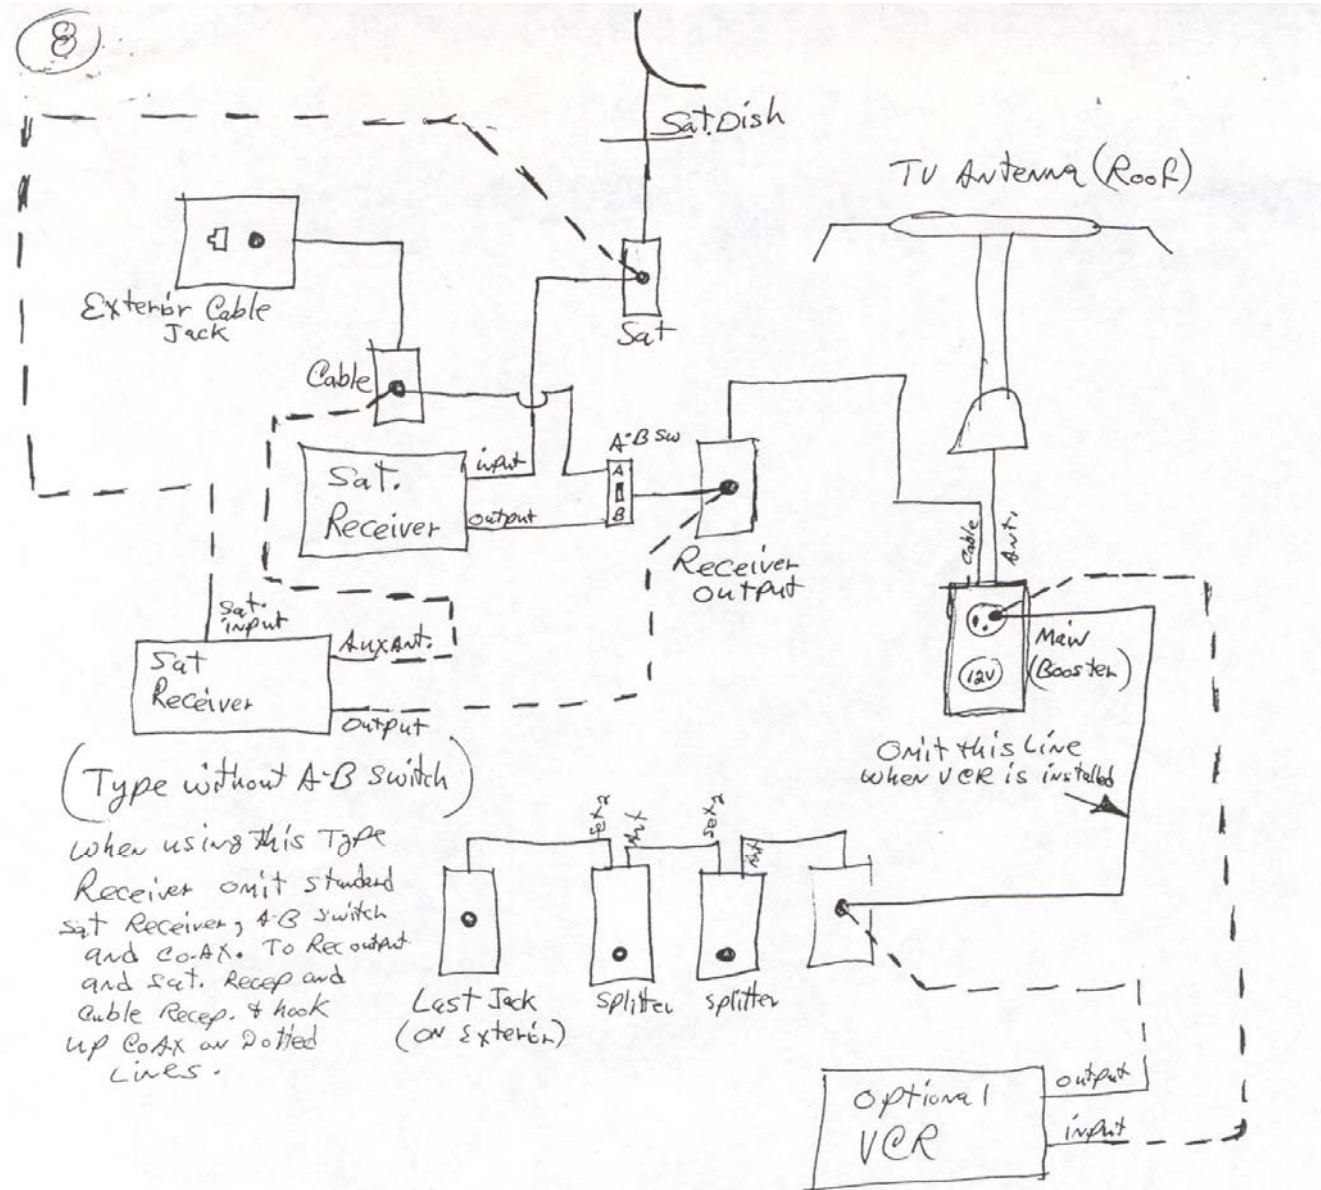 8
Sat. Dish
TV Antenna (Roof)
Exterior Cable
Jack
Sat
Cable
A-B SW
Sat.
Receiver
input
output
A
B
Receiver
output
Cable
Ant.
Main
(Booster)
12V
Sat.
input
Sat
Receiver
Aux Ant.
output
Omit this Line
when VCR is installed
(Type without A-B Switch)
when using this Type
Receiver omit standard
sat Receiver, A-B switch
and Co-AX. To Rec output
and sat. Recep and
Cable Recep. & hook
up CoAx on Dotted
Lines.
Last Jack
(on Exterior)
splitter
splitter
optional
VCR
output
input